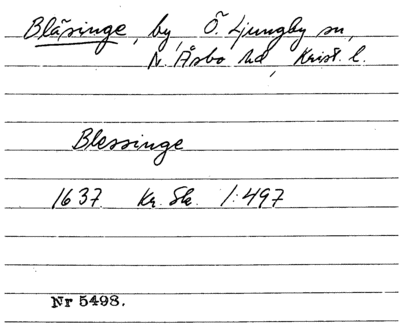 Bläsinge, by, Ö. Ljungby sn,
N. Åsbo hd, Krist. l.
Blessinge
1637 Kr. Sk. 1:497
Nr 5498.